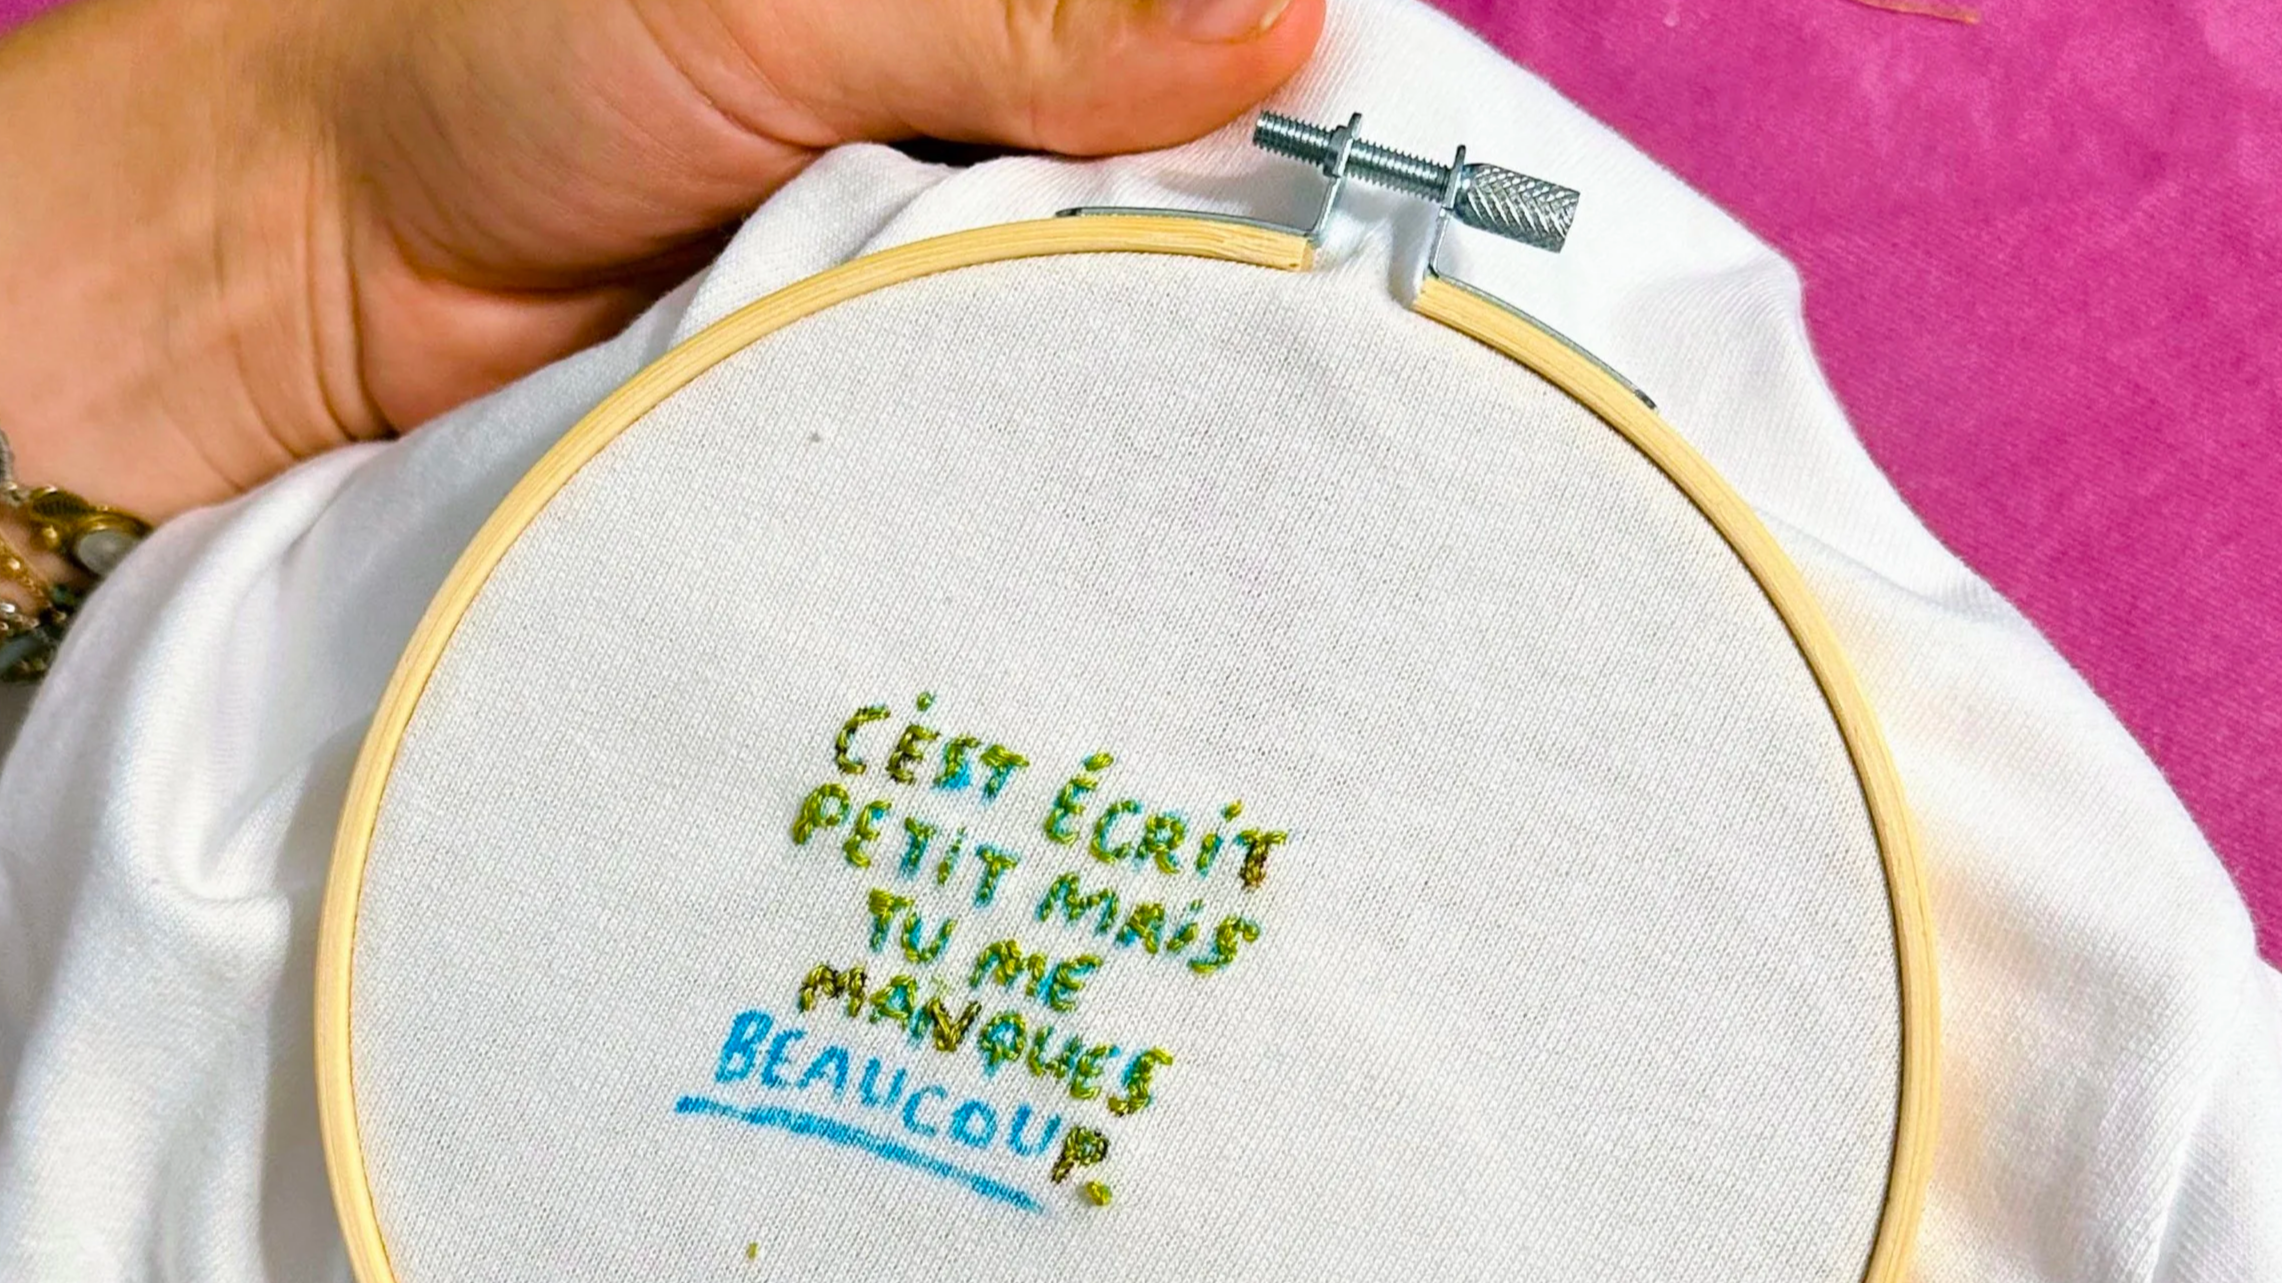 C'EST ÉCRIT
PETIT MAIS
TU ME
MANQUES
BEAUCOUP.